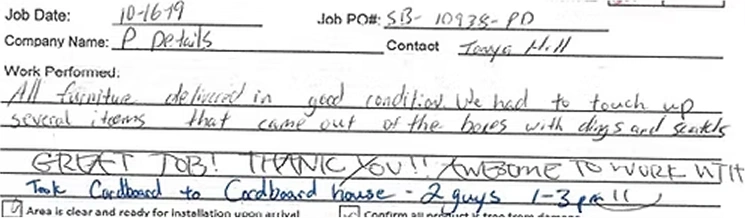 Job Date: 10-16-19 Job PO#: SB- 10938-PD
Company Name: P Details Contact Tonya Hill
Work Performed:
All furniture delivered in good condition. We had to touch up
several iteems that came out of the boxes with dings and scratchs
GREAT JOB! THANK YOU!! AWESOME TO WORK WITH
Took Cardboard to Cardboard house - 2 guys 1-3 pm !!
Area is clear and ready for installation upon arrival Confirm all product is free from damage